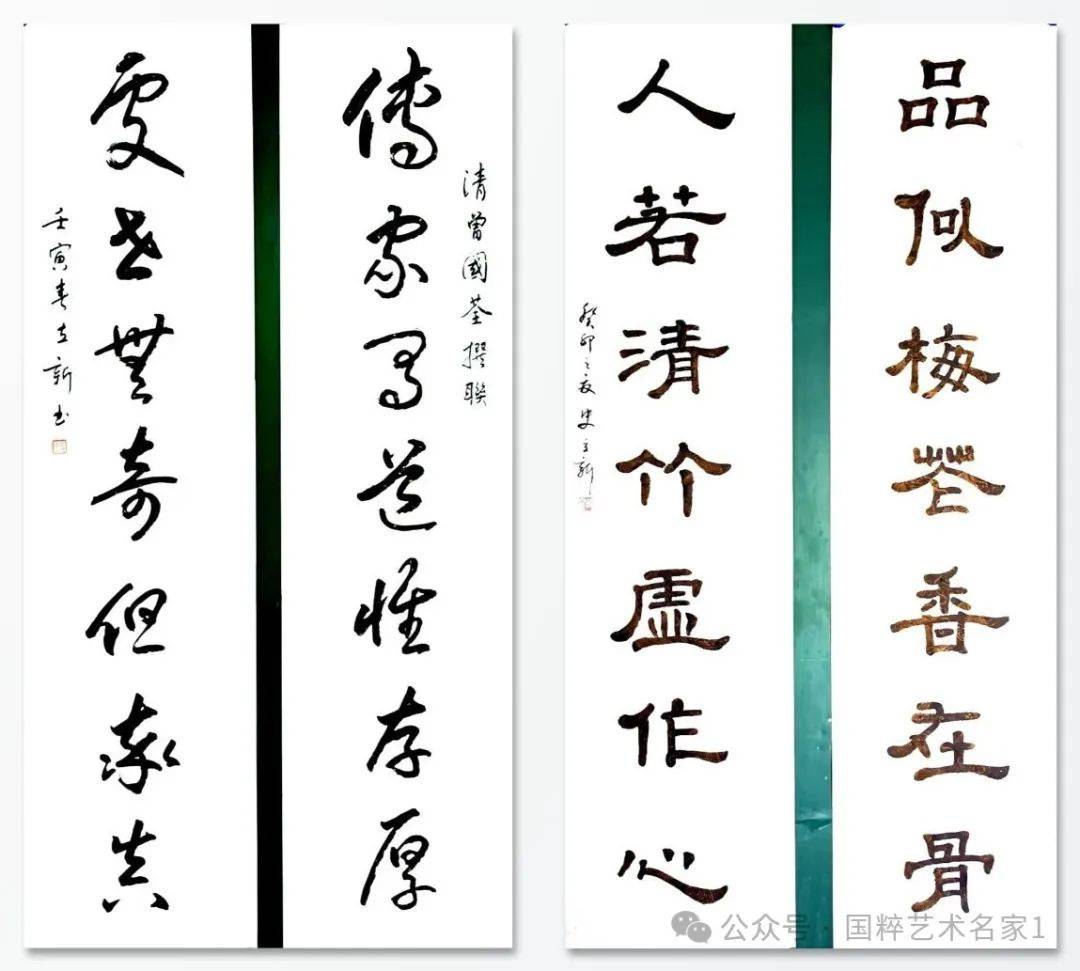 傳家有道惟存厚
清曾國荃撰聯
處世無奇但率真
壬寅春立新书
品似梅花香在骨
人若清竹虛作心
癸卯之夏史立新
公众号 · 国粹艺术名家1